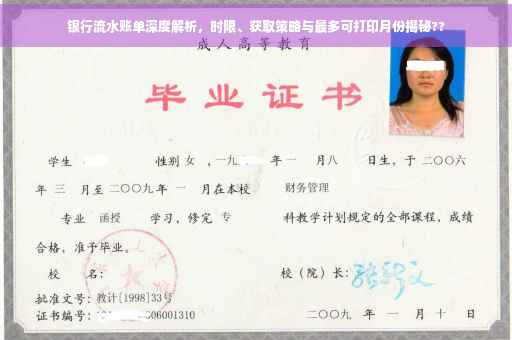 银行流水账单深度解析，时限、获取策略与最多可打印月份揭秘??
成人高等教育
毕业证书
学生 性别 女 ，一九 年一 月八 日生，于二〇〇六
年 三 月至二〇〇九年 一 月在本校 财务管理
专业 函授 学习，修完 专 科教学计划规定的全部课程，成绩
合格，准予毕业。
校 名： 校（院）长：
批准文号：教计[1998]33号
证书编号： 006001310 二〇〇九 年 一 月 十 日